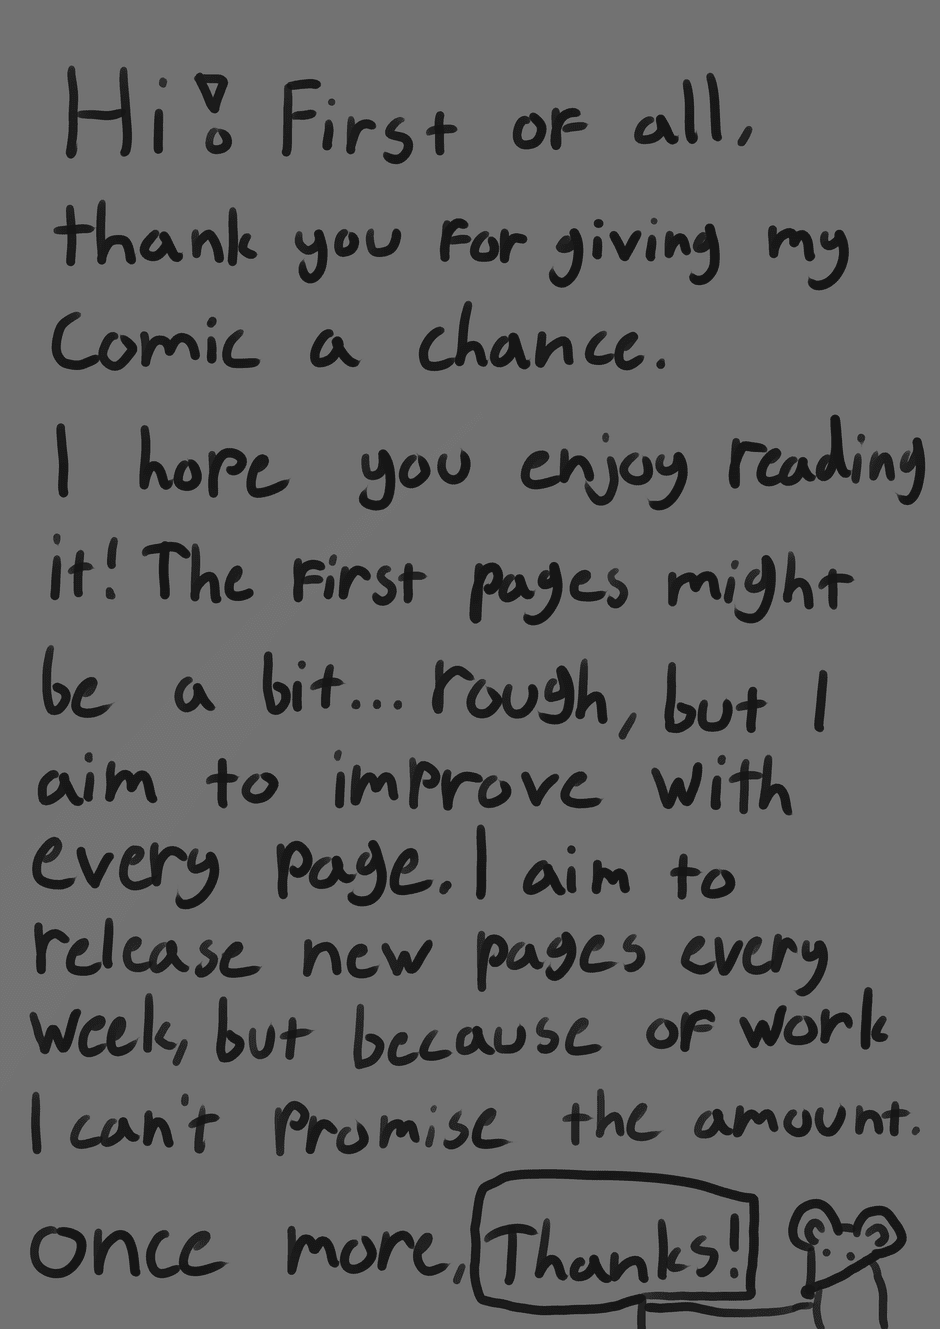 Hi! First of all,
thank you for giving my
Comic a chance.
I hope you enjoy reading
it! The first pages might
be a bit... rough, but I
aim to improve with
every page. I aim to
release new pages every
week, but because of work
I can't promise the amount.
Once more, Thanks!